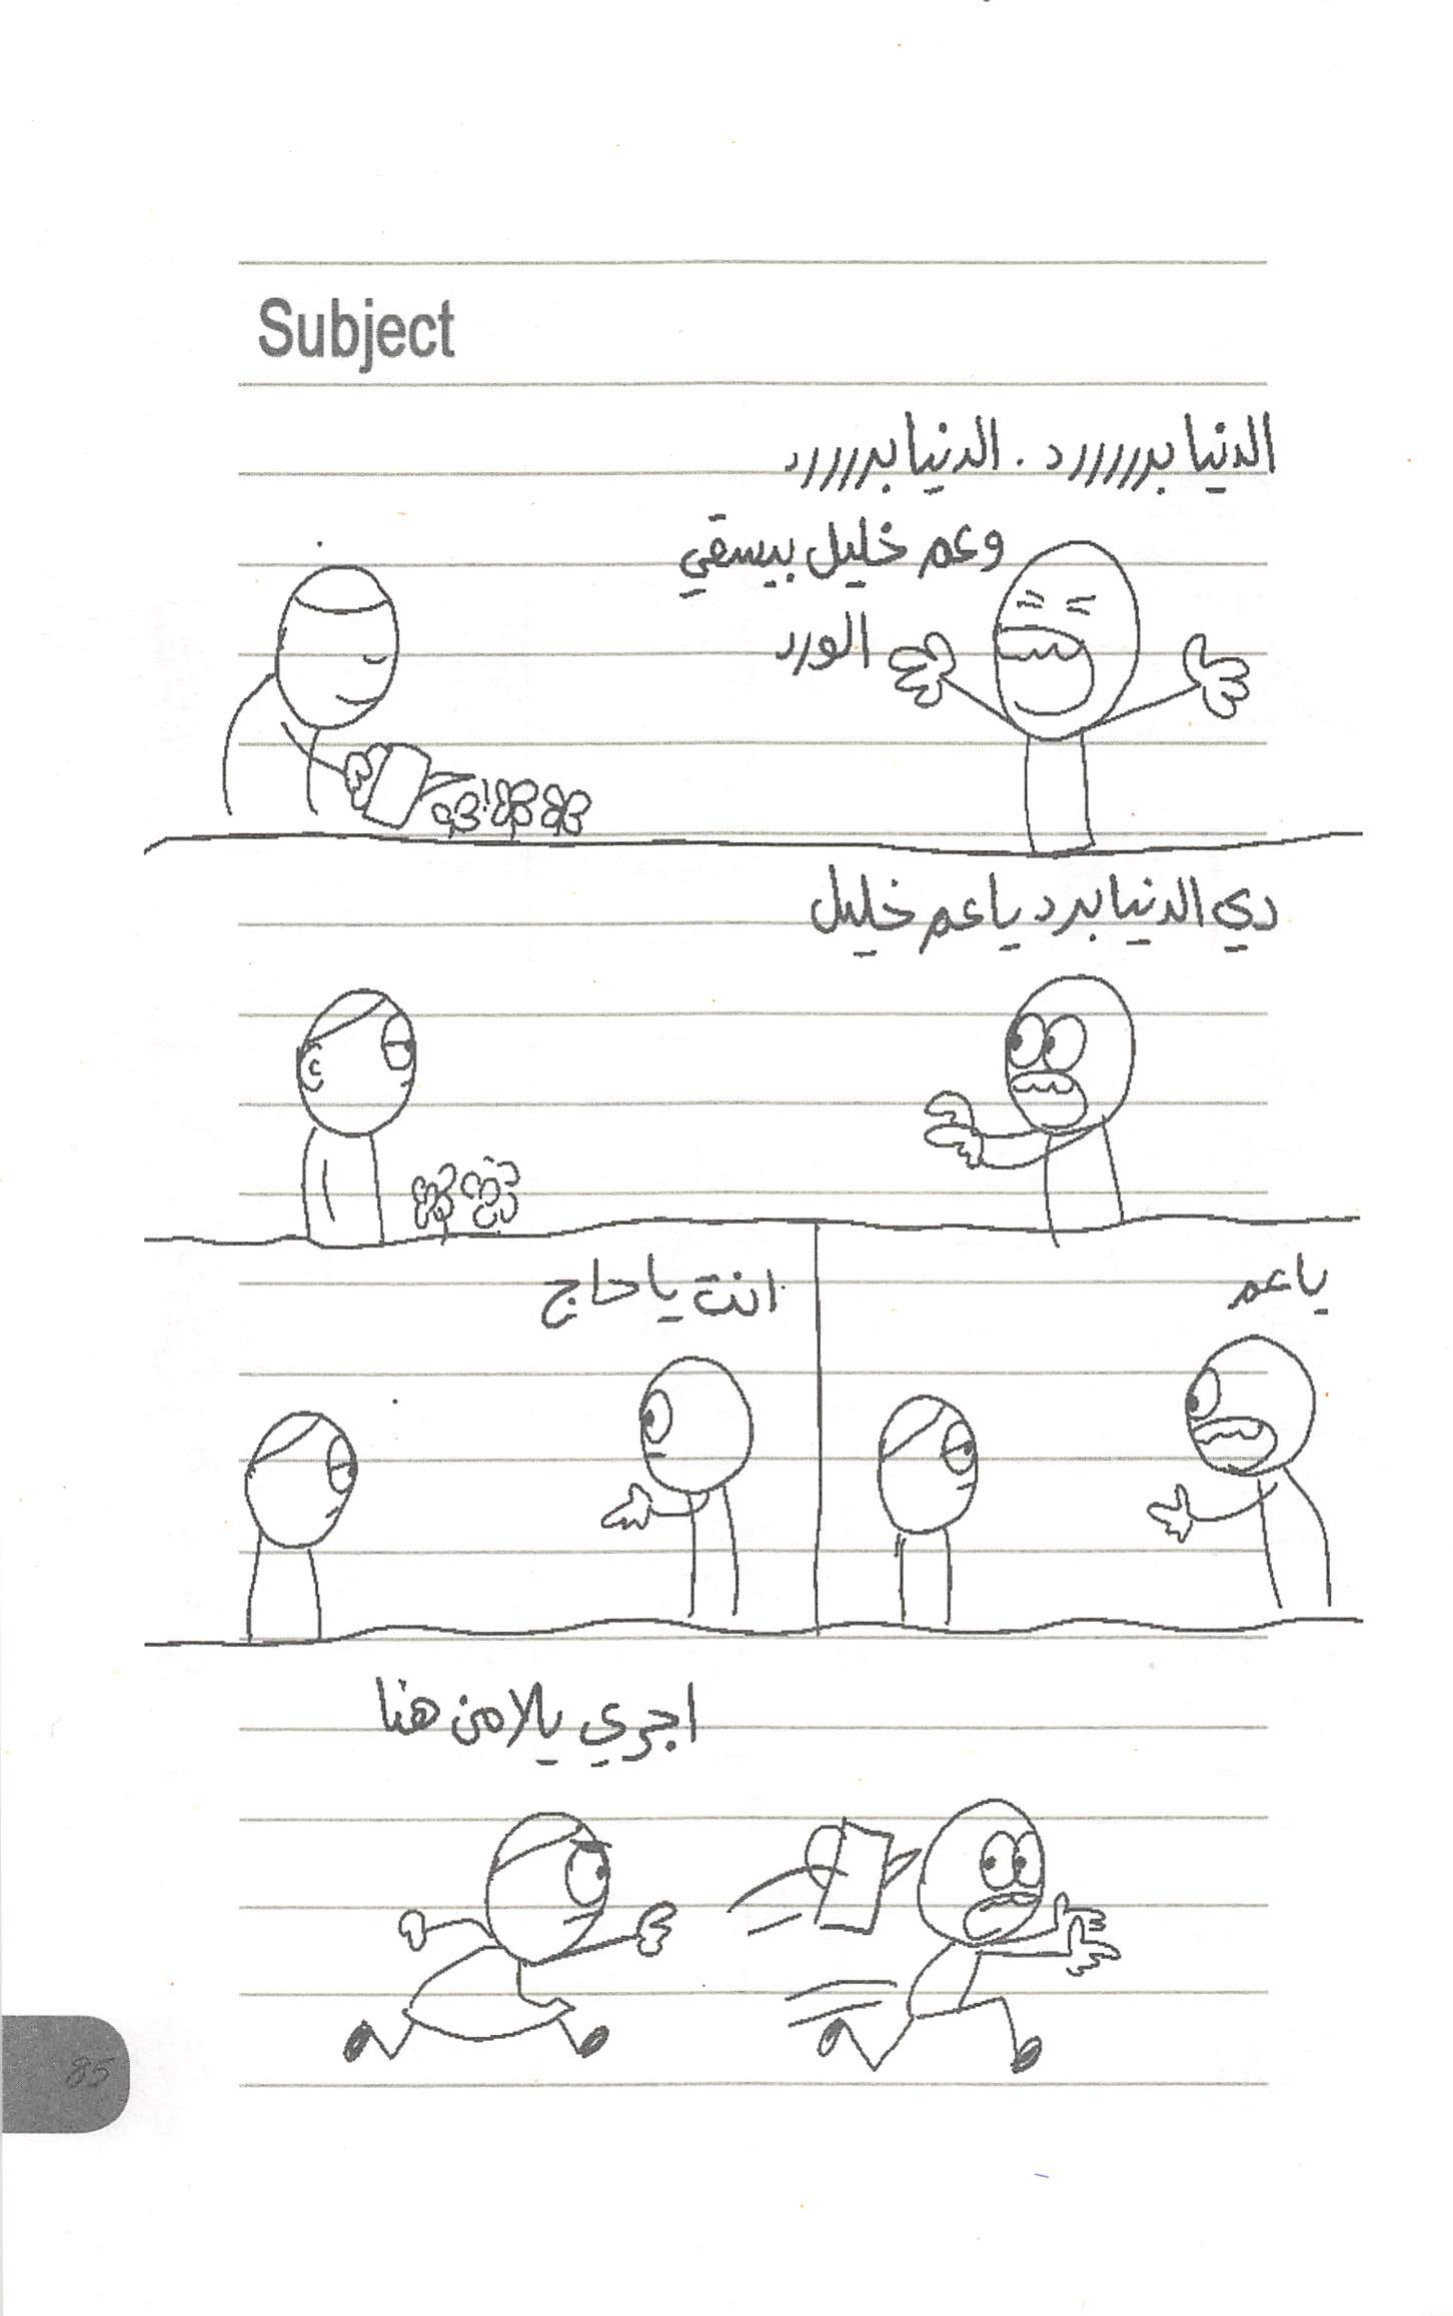 Subject
الدنيا بررررررد . الدنيا بررررررد
وعم خليل بيسقي
الورد
دي الدنيا برد يا عم خليل
يا عم
انت يا حاج
اجري يلا من هنا
85